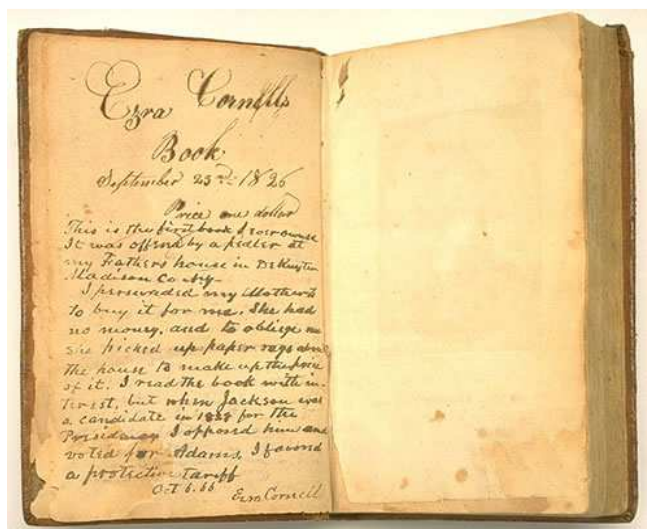 Ezra Cornell's
Book
September 23rd 1826
Price one dollar
This is the first book I ever owned
It was offered by a pedler at
my Fathers house in DeRuyter
Madison Co NY
I persuaded my Mother to
to buy it for me. She had
no money, and to oblige me
she picked up paper rags about
the house to make up the price
of it. I read the book with in-
terest, but when Jackson was
a candidate in 1828 for the
Presidency I opposed him and
voted for Adams, I favored
a protective tariff
Oct 6. 66
Ezra Cornell